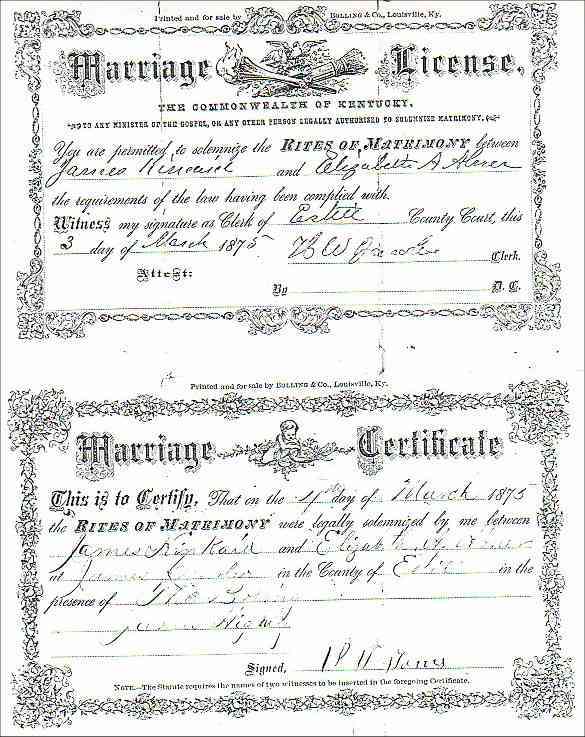 Printed and for sale by BULLING & CO., Louisville, Ky.
Marriage License.
THE COMMONWEALTH OF KENTUCKY.
TO ANY MINISTER OF THE GOSPEL, OR ANY OTHER PERSON LEGALLY AUTHORISED TO SOLEMNIZE MATRIMONY.
You are permitted to solemnize the RITES OF MATRIMONY between
James Kincaid and Elizabeth A
the requirements of the law having been complied with.
Witness my signature as Clerk of Estill County Court, this
3 day of March 1875 B W Clerk.
Attest:
By D. C.
Printed and for sale by BULLING & CO., Louisville, Ky.
Marriage Certificate
This is to Certify, That on the 4th day of March 1875
the RITES OF MATRIMONY were legally solemnized by me between
James Kinkaid and Elizabeth
at James in the County of Estill in the
presence of
Signed, Jones
NOTE.—The Statute requires the names of two witnesses to be inserted in the foregoing Certificate.